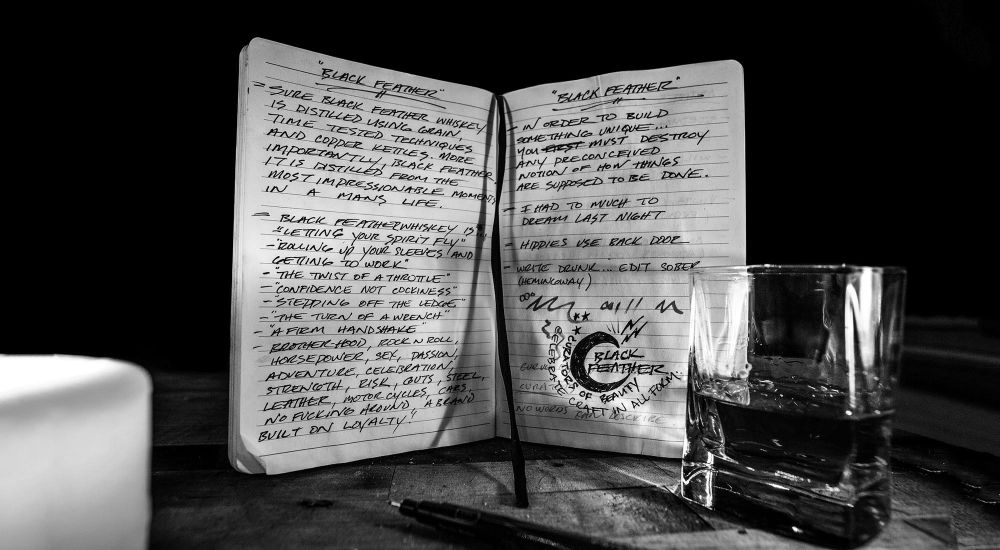 "BLACK FEATHER"
= SURE BLACK FEATHER WHISKEY
IS DISTILLED USING GRAIN,
TIME TESTED TECHNIQUES
AND COPPER KETTLES. MORE
IMPORTANTLY, BLACK FEATHER,
IT IS DISTILLED FROM THE
MOST IMPRESSIONABLE MOMENTS
IN A MANS LIFE.
= BLACK FEATHER WHISKEY IS...
- "LETTING YOUR SPIRIT FLY"
- "ROLLING UP YOUR SLEEVES AND
GETTING TO WORK"
- "THE TWIST OF A THROTTLE"
- "CONFIDENCE NOT COCKINESS"
- "STEPPING OFF THE LEDGE"
- "THE TURN OF A WRENCH"
- "A FIRM HANDSHAKE"
- BROTHERHOOD, ROCK N ROLL,
HORSEPOWER, SEX, PASSION,
ADVENTURE, CELEBRATION,
STRENGTH, RISK, GUTS, STEEL,
LEATHER, MOTORCYCLES, CARS
NO FUCKING AROUND, A BRAND
BUILT ON LOYALTY"
"BLACK FEATHER"
- IN ORDER TO BUILD
SOMETHING UNIQUE...
YOU FIRST MUST DESTROY
ANY PRECONCEIVED
NOTION OF HOW THINGS
ARE SUPPOSED TO BE DONE..
- I HAD TO MUCH TO
DREAM LAST NIGHT
- HIPPIES USE BACK DOOR
- WRITE DRUNK... EDIT SOBER
(HEMINGWAY)
BLACK
FEATHER
CURATORS OF BEAUTY IN ALL FORM
CELEBRATE CRAFT
NO WORDS